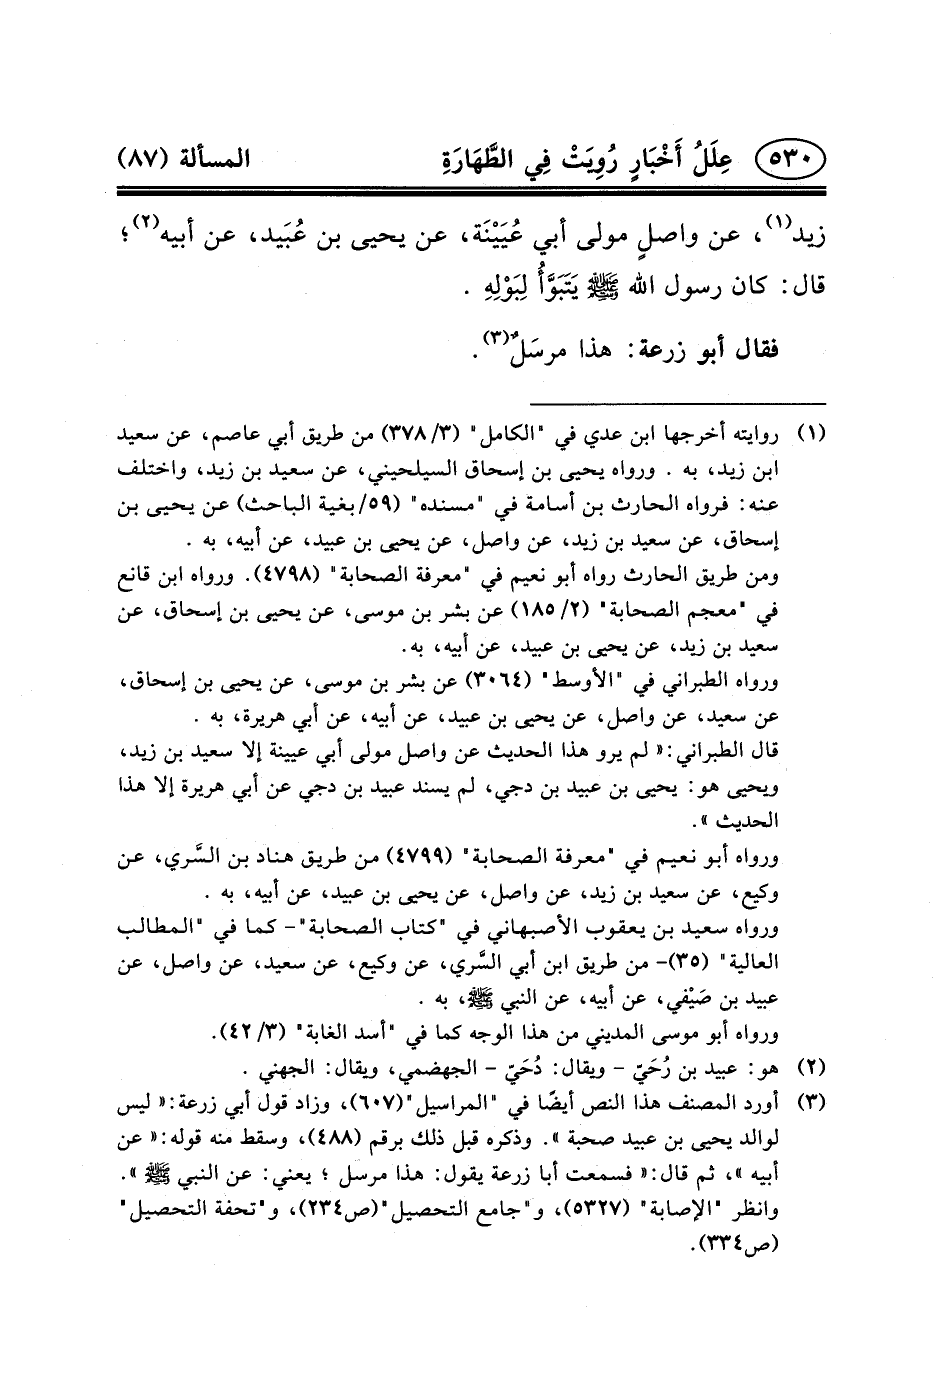 ٥٣٠ عِلَلُ أَخْبَارٍ رُوِيَتْ فِي الطَّهَارَةِ المسألة (٨٧)
زيد(١)، عن واصلٍ مولى أبي عُيَيْنَة، عن يحيى بن عُبَيد، عن أبيه(٢)؛
قال: كان رسول الله ﷺ يَتَبَوَّأُ لِبَوْلِهِ .
فقال أبو زرعة: هذا مرسَلٌ(٣).
(١) روايته أخرجها ابن عدي في "الكامل" (٣/ ٣٧٨) من طريق أبي عاصم، عن سعيد
ابن زيد، به . ورواه يحيى بن إسحاق السيلحيني، عن سعيد بن زيد، واختلف
عنه: فرواه الحارث بن أسامة في "مسنده" (٥٩/ بغية الباحث) عن يحيى بن
إسحاق، عن سعيد بن زيد، عن واصل، عن يحيى بن عبيد، عن أبيه، به .
ومن طريق الحارث رواه أبو نعيم في "معرفة الصحابة" (٤٧٩٨). ورواه ابن قانع
في "معجم الصحابة" (٢/ ١٨٥) عن بشر بن موسى، عن يحيى بن إسحاق، عن
سعيد بن زيد، عن يحيى بن عبيد، عن أبيه، به.
ورواه الطبراني في "الأوسط" (٣٠٦٤) عن بشر بن موسى، عن يحيى بن إسحاق،
عن سعيد، عن واصل، عن يحيى بن عبيد، عن أبيه، عن أبي هريرة، به .
قال الطبراني: « لم يرو هذا الحديث عن واصل مولى أبي عيينة إلا سعيد بن زيد،
ويحيى هو: يحيى بن عبيد بن دجي، لم يسند عبيد بن دجي عن أبي هريرة إلا هذا
الحديث ».
ورواه أبو نعيم في "معرفة الصحابة" (٤٧٩٩) من طريق هناد بن السَّري، عن
وكيع، عن سعيد بن زيد، عن واصل، عن يحيى بن عبيد، عن أبيه، به .
ورواه سعيد بن يعقوب الأصبهاني في "كتاب الصحابة"- كما في "المطالب
العالية" (٣٥)- من طريق ابن أبي السَّري، عن وكيع، عن سعيد، عن واصل، عن
عبيد بن صَيْفي، عن أبيه، عن النبي ﷺ، به .
ورواه أبو موسى المديني من هذا الوجه كما في "أسد الغابة" (٣/ ٤٢).
(٢) هو: عبيد بن رُحَيّ - ويقال: دُحَيّ - الجهضمي، ويقال: الجهني .
(٣) أورد المصنف هذا النص أيضًا في "المراسيل"(٦٠٧)، وزاد قول أبي زرعة: « ليس
لوالد يحيى بن عبيد صحبة ». وذكره قبل ذلك برقم (٤٨٨)، وسقط منه قوله: « عن
أبيه »، ثم قال: « فسمعت أبا زرعة يقول: هذا مرسل ؛ يعني: عن النبي ﷺ ».
وانظر "الإصابة" (٥٣٢٧)، و"جامع التحصيل"(ص٢٣٤)، و"تحفة التحصيل"
(ص٣٣٤).